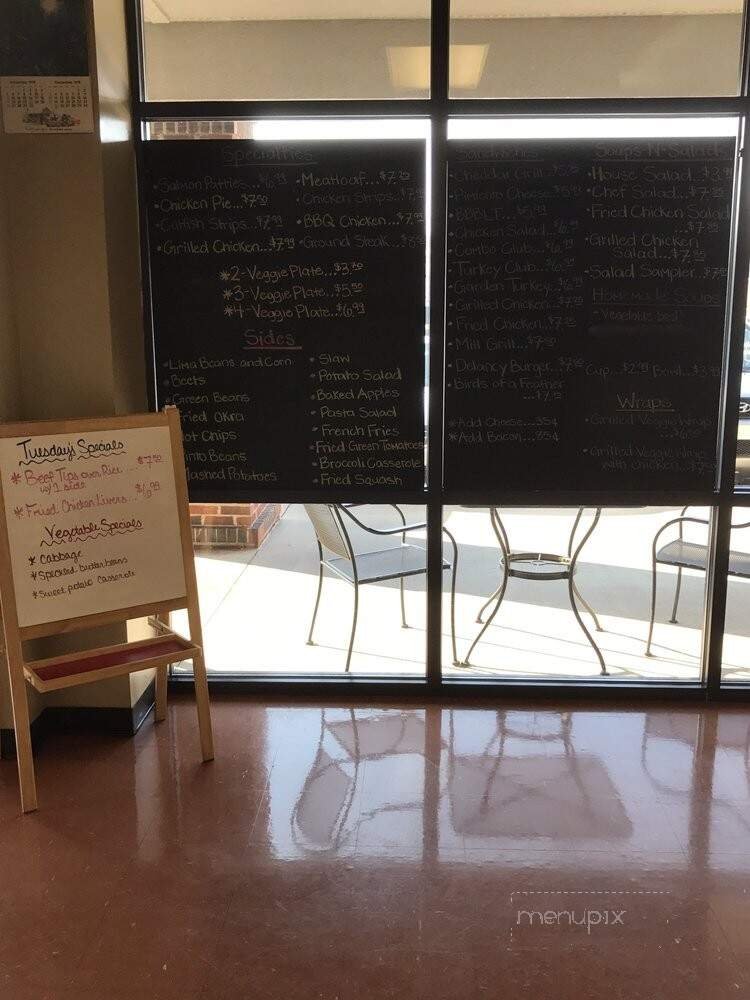 Specialties
•Salmon Patties...$6.99
•Chicken Pie...$7.50
•Catfish Strips...$7.99
•Grilled Chicken...$7.99
•Meatloaf...$7.25
•Chicken Strips...
•BBQ Chicken...
•Ground Steak...
*2-Veggie Plate...$3.70
*3-Veggie Plate...$5.50
*4-Veggie Plate...$6.99
Sides
•Lima Beans and Corn
•Beets
Green Beans
Fried Okra
Hot Chips
Pinto Beans
Mashed Potatoes
•Slaw
•Potato Salad
•Baked Apples
•Pasta Salad
•French Fries
•Fried Green Tomatoes
•Brocoli Casserole
•Fried Squash
Sandwiches
Cheddar Grill...
Pimento Cheese...
Chicken Salad...
Combo Club...
Turkey Club...
Garden Turkey...
Grilled Chicken...
Fried Chicken...
Mill Grill...
•Delancy Burger...
•Birds of a Feather
*Add Cheese...35¢
*Add Bacon...85¢
Soups-N-Salads
•House Salad...
•Chef Salad...
•Fried Chicken Salad
•Grilled Chicken
Salad...
•Salad Sampler...
Homemade Soups
•Vegetable beef
Cup...$2.99 Bowl...
Wraps
•Grilled Veggie Wrap
•Grilled Veggie Wrap
with chicken...
Tuesday's Specials
* Beef Tips over Rice ... $7.50
w/1 side
* Fried Chicken Livers... $6.99
Vegetable Specials
* Cabbage
* Speckled butterbeans
* Sweet potato casserole
menupix